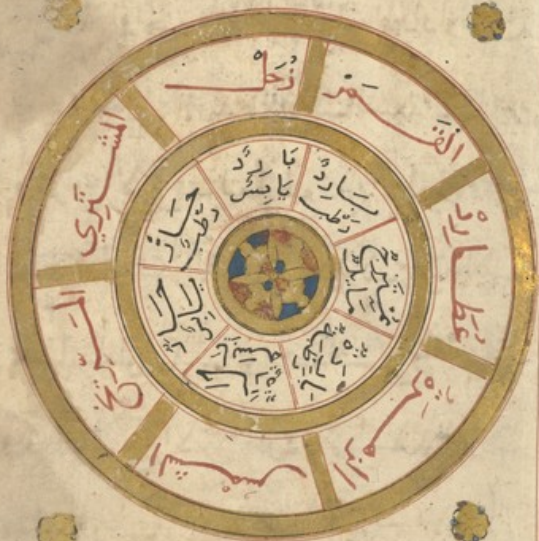 زُحَل
القَمَر
عُطَارِدْ
الزهرة
الشمس
المريخ
المشتري
بَارِدٌ
يَابِسٌ
بَارِدٌ
رَطْب
مُمْتَزِجٌ
حَارٌّ
يَابِسٌ
حَارٌّ
رَطْب